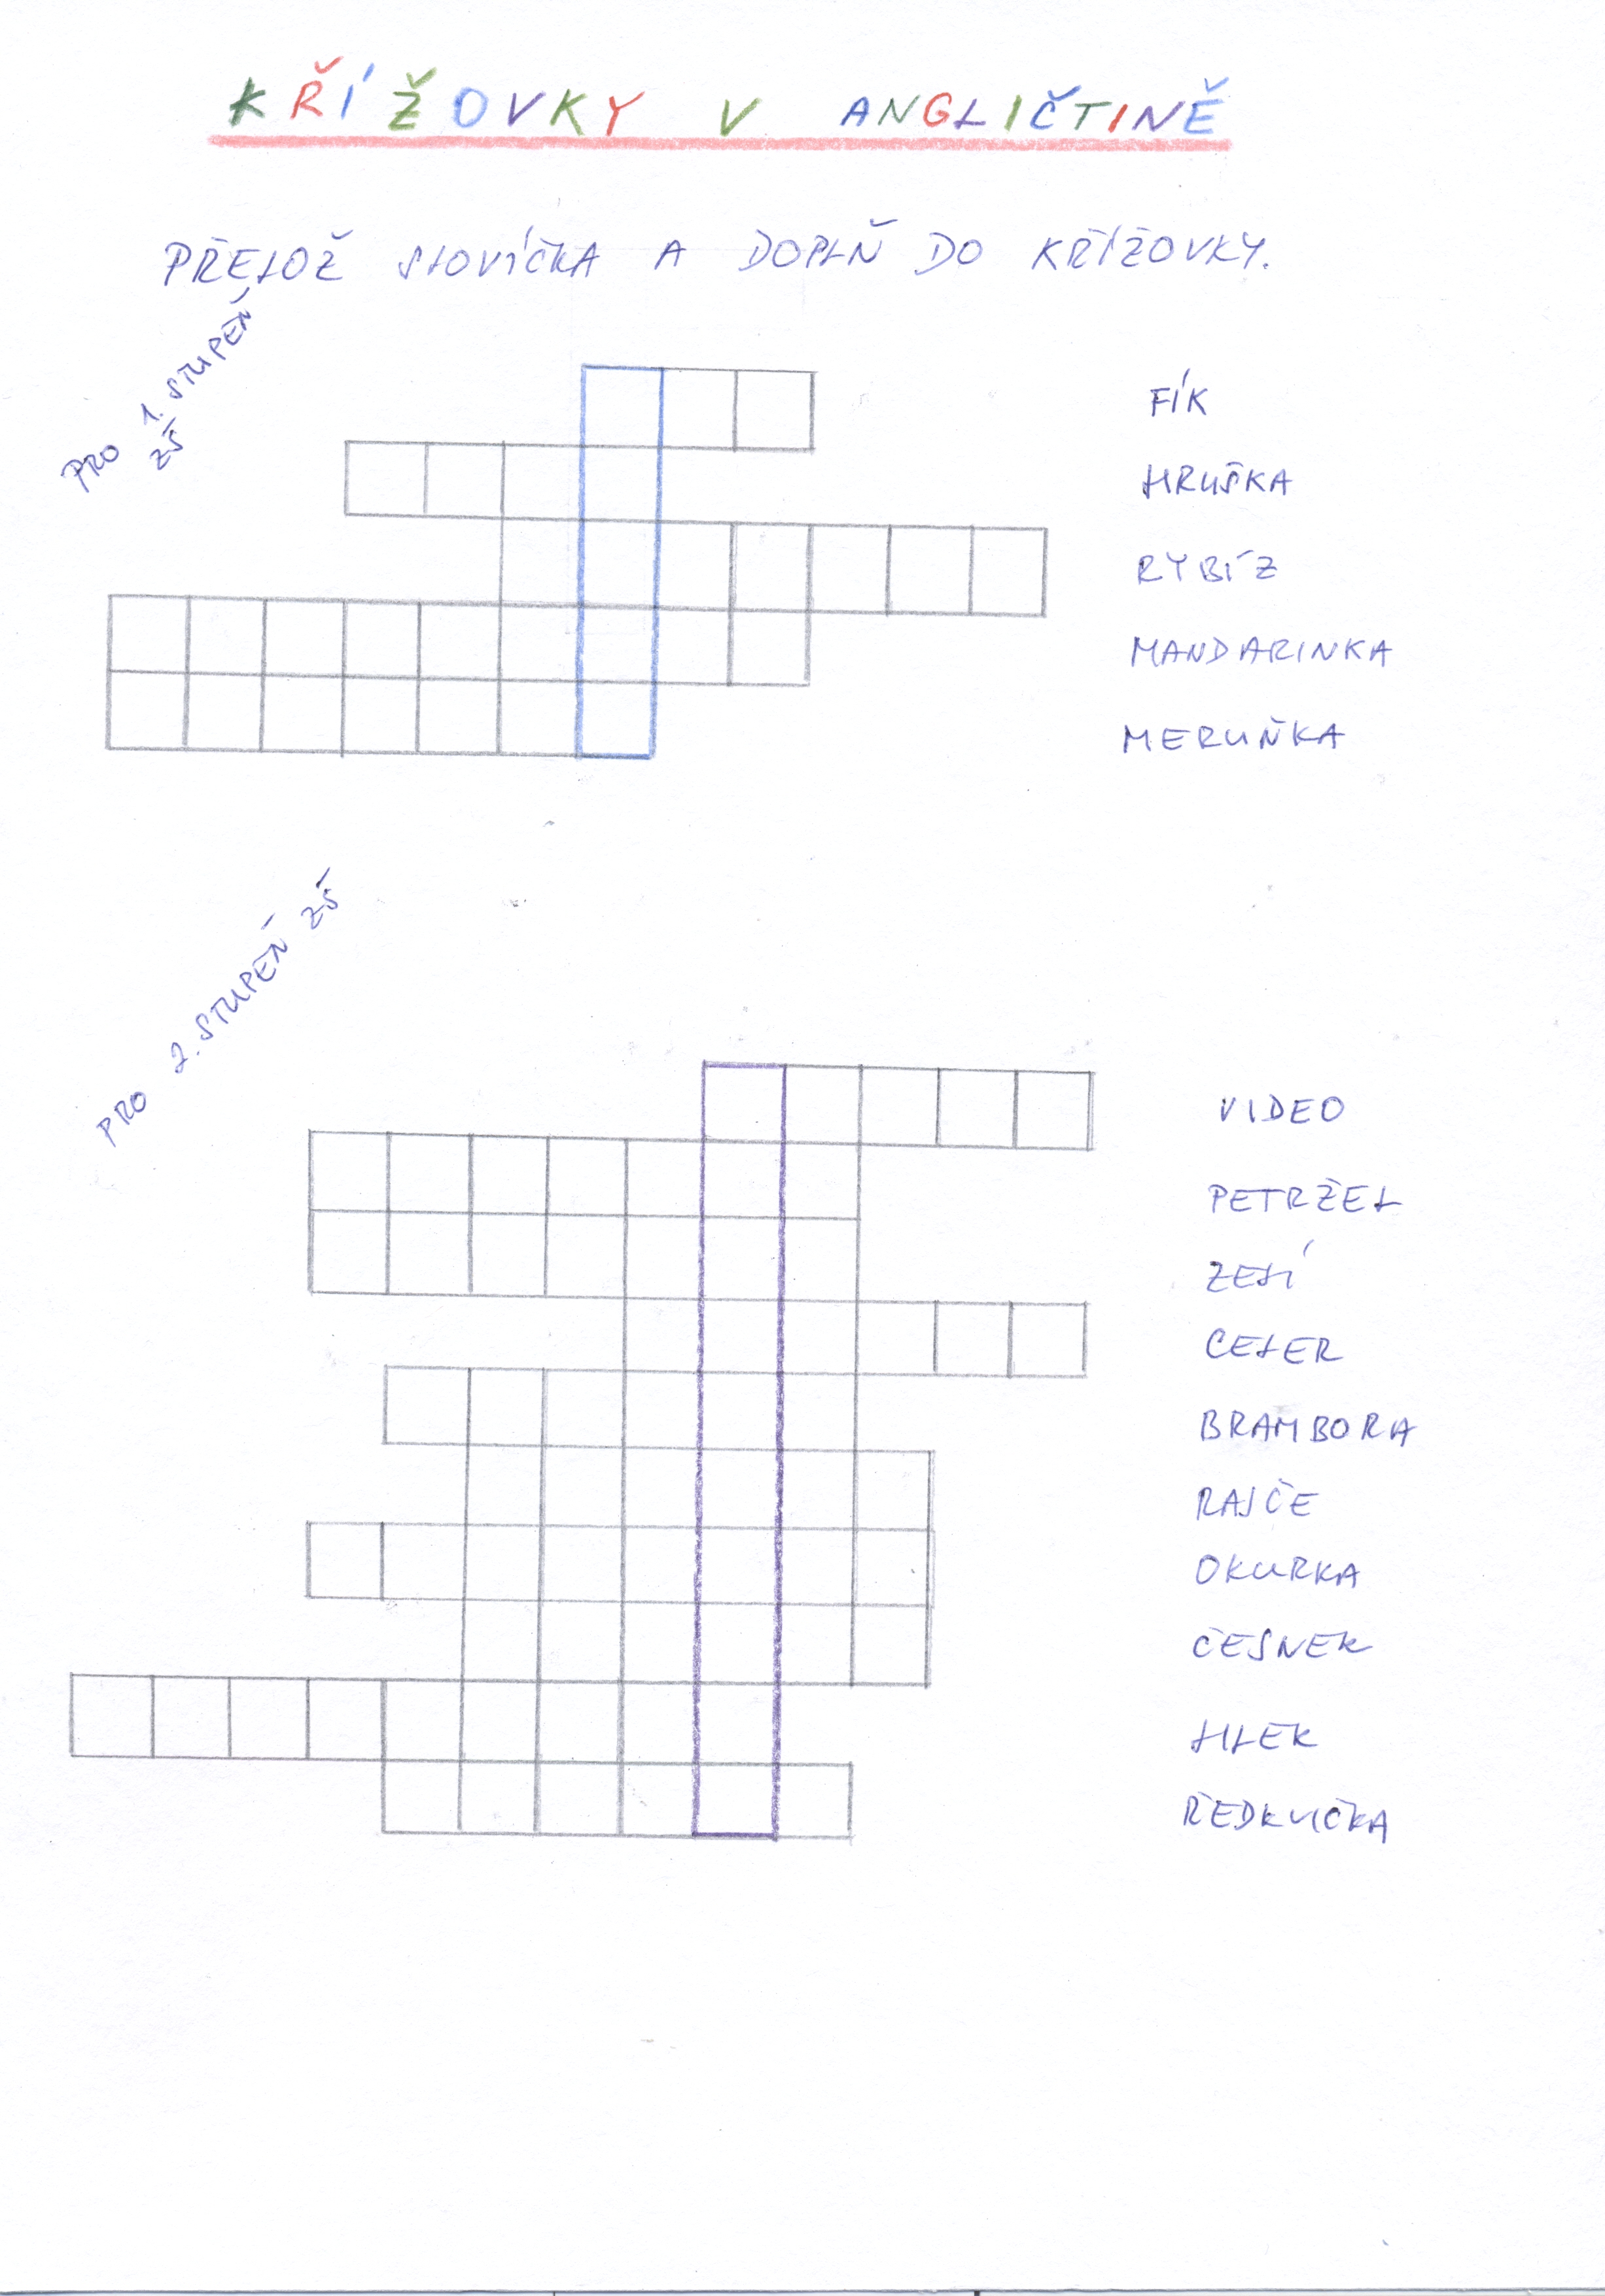 KŘÍŽOVKY V ANGLIČTINĚ
PŘELOŽ SLOVÍČKA A DOPLŇ DO KŘÍŽOVKY.
PRO 1. STUPEŇ
ZŠ
FÍK
HRUŠKA
RYBÍZ
MANDARINKA
MERUŇKA
PRO 2. STUPEŇ ZŠ
VIDEO
PETRŽEL
ZELÍ
CELER
BRAMBORA
RAJČE
OKURKA
ČESNEK
LILEK
ŘEDKVIČKA